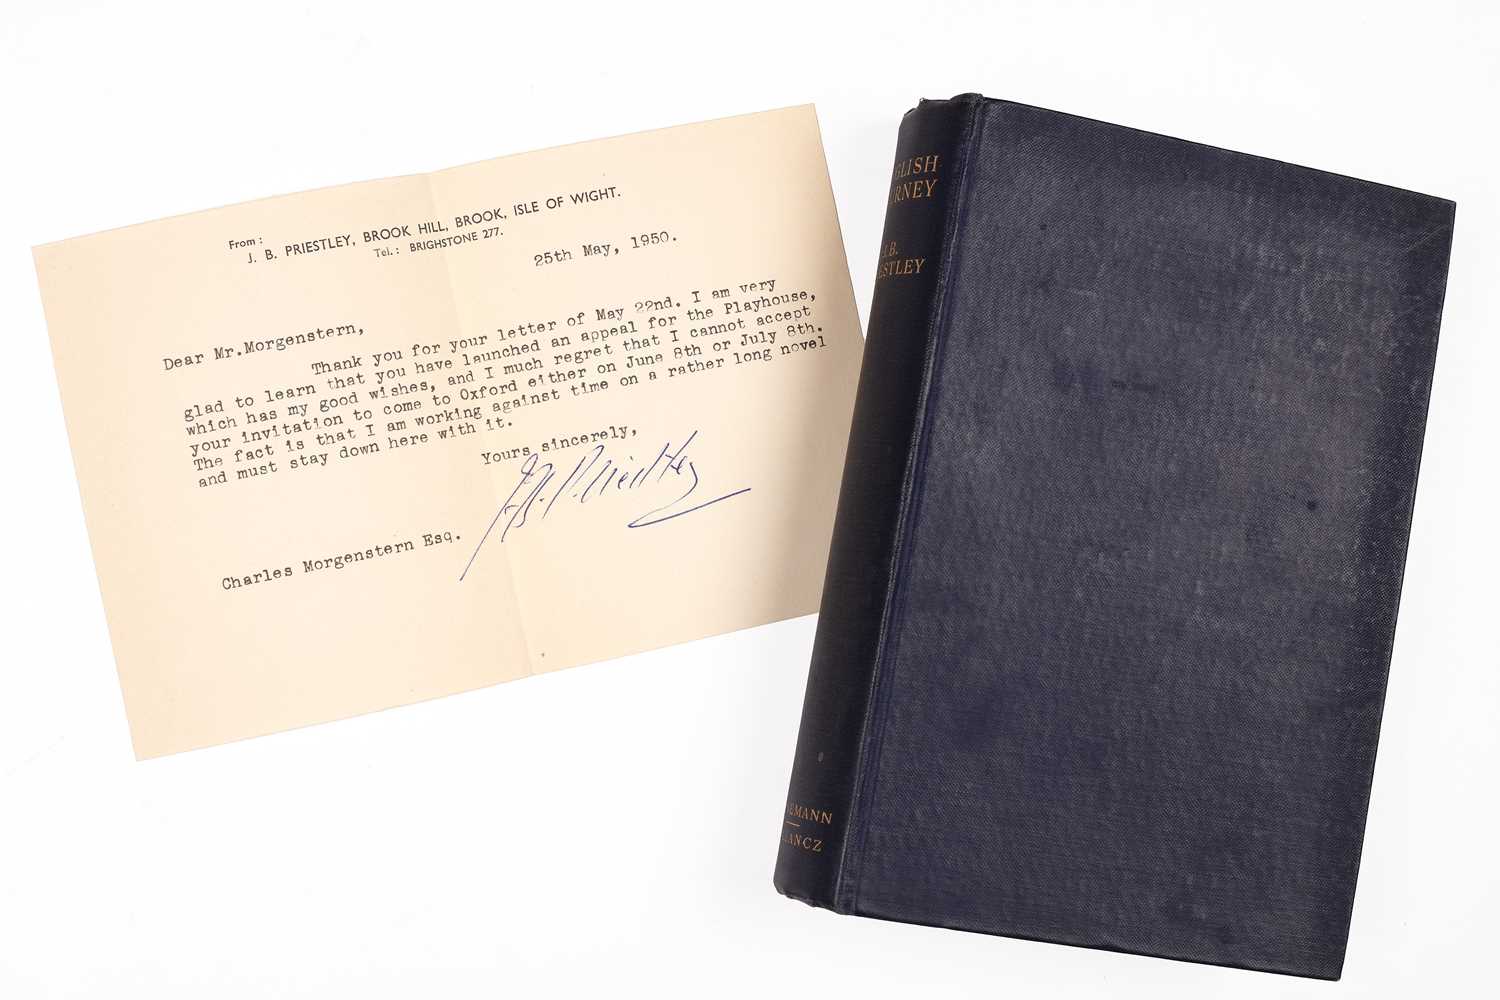 From :
J. B. PRIESTLEY, BROOK HILL, BROOK, ISLE OF WIGHT.
Tel.: BRIGHSTONE 277.
25th May, 1950.
Dear Mr.Morgenstern,
Thank you for your letter of May 22nd. I am very
glad to learn that you have launched an appeal for the Playhouse,
which has my good wishes, and I much regret that I cannot accept
your invitation to come to Oxford either on June 8th or July 8th.
The fact is that I am working against time on a rather long novel
and must stay down here with it.
Yours sincerely,
J.B. Priestley
Charles Morgenstern Esq.
GLISH
RNEY
J.B.
ESTLEY
EMANN
LANCZ